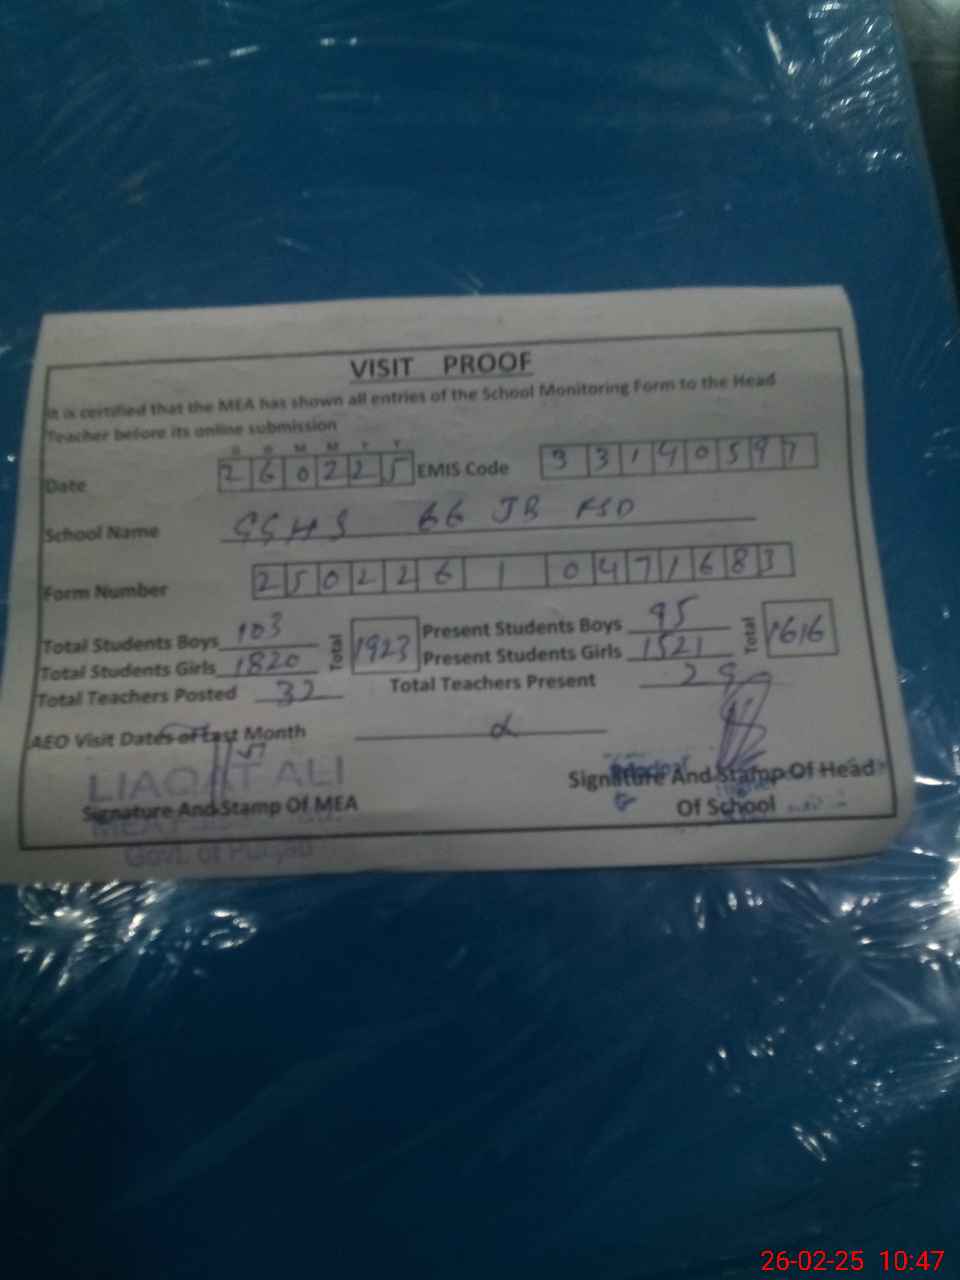 VISIT PROOF
It is certified that the MEA has shown all entries of the School Monitoring Form to the Head
Teacher before its online submission
D D M M Y Y
Date 260225 EMIS Code 33140597
School Name GGHS 66 JB FSD
Form Number 2502261 0471683
Total Students Boys 103 Total 1923 Present Students Boys 95 Total 1616
Total Students Girls 1820 Present Students Girls 1521
Total Teachers Posted 32 Total Teachers Present 29
AEO Visit Dates of Last Month
LIAQAT ALI
Signature And Stamp Of MEA
Govt. of Punjab
Principal
Signature And Stamp Of Head
Of School
26-02-25 10:47